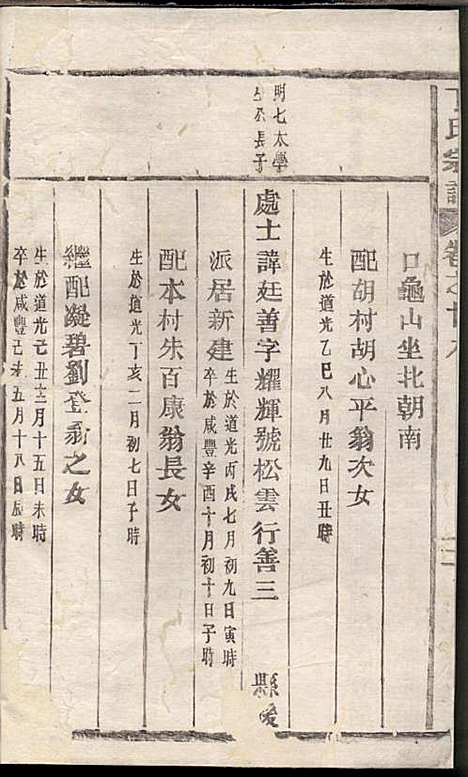 氏宗譜 卷之十八
口龜山坐北朝南
配胡村胡心平翁次女
生於道光乙巳八月廿九日丑時
明七太學
生公長子
處士諱廷善字耀輝號松雲行善三
派居新建
生於道光丙戌七月初九日寅時
卒於咸豐辛酉十月初十日子時
配本村朱百康翁長女
生於道光丁亥二月初七日子時
繼配凝碧劉登翁之女
生於道光己丑三月十五日未時
卒於咸豐己未五月十八日辰時